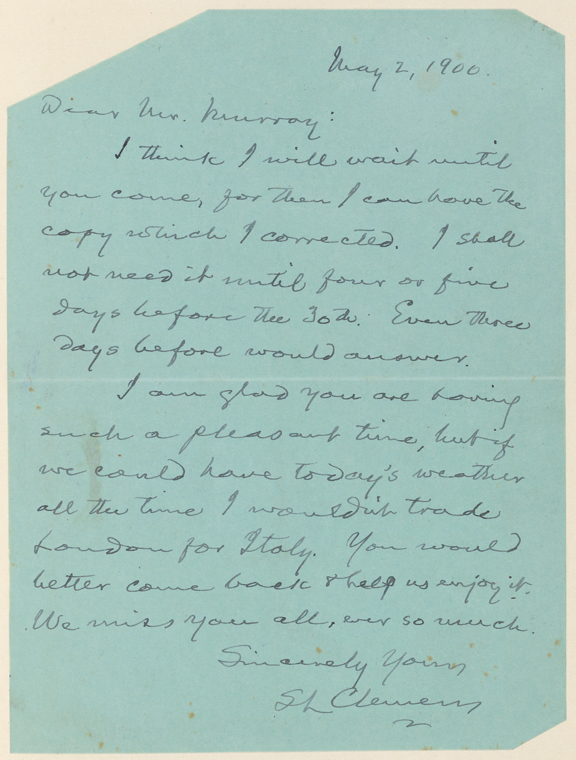 May 2, 1900.
Dear Mr. Murray:
I think I will wait until
you come, for then I can have the
copy which I corrected. I shall
not need it until four or five
days before the 30th. Even three
days before would answer.
I am glad you are having
such a pleasant time, but if
we could have to-day's weather
all the time I wouldn't trade
London for Italy. You would
better come back & help us enjoy it.
We miss you all, ever so much.
Sincerely Yours
SL Clemens